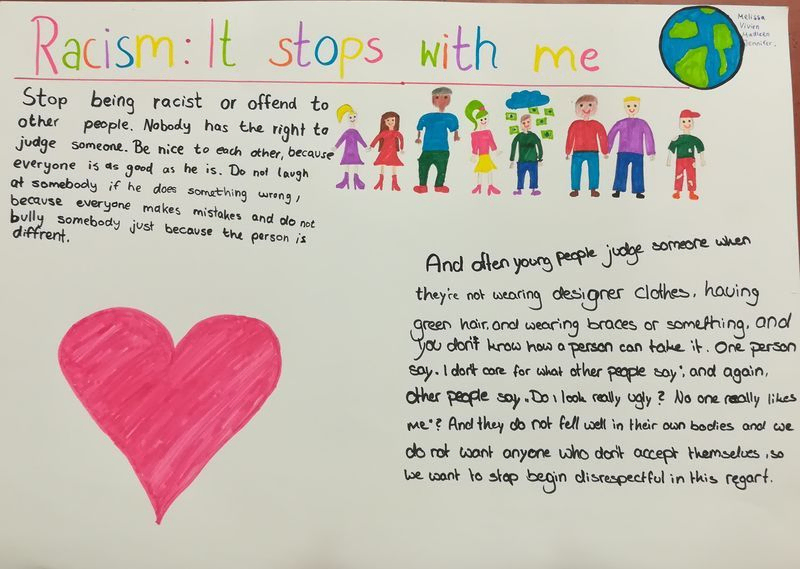 Racism: It stops with me
Melissa
Vivien
Jennifer.
Stop being racist or offend to
other people. Nobody has the right to
judge someone. Be nice to each other, because
everyone is as good as he is. Do not laugh
at somebody if he does something wrong,
because everyone makes mistakes and do not
bully somebody just because the person is
diffrent.
And often young people judge someone when
they're not wearing designer clothes, having
green hair, and wearing braces or something, and
you don't know how a person can take it. One person
say „I don't care for what other people say“, and again,
other people say „Do I look really ugly? No one really likes
me“? And they do not fell well in their own bodies and we
do not want anyone who don't accept themselves, so
we want to stop begin disrespectful in this regart.